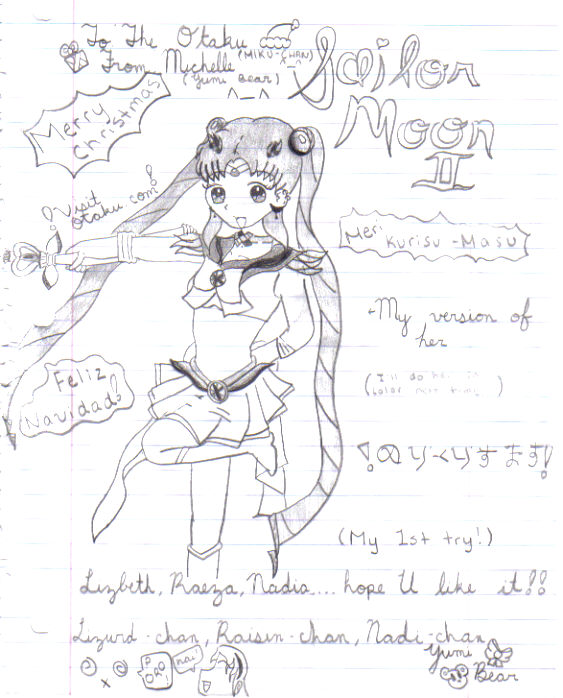 To The Otaku
(MIKU-CHAN)
From Michelle
(Yumi Bear)
^_^
Sailor
Moon
II
Merry
Christmas
¡Visit
otaku.com!
Meri
Kurisu-Masu
-My version of
her
(I'll do her in
color next time)
Feliz
Navidad
¡めりくりすます!
(My 1st try!)
Lizbeth, Raeza, Nadia.... hope U like it!!
Lizurd-chan, Raisin-chan, Nadi-chan
Yumi
Bear
ORO!